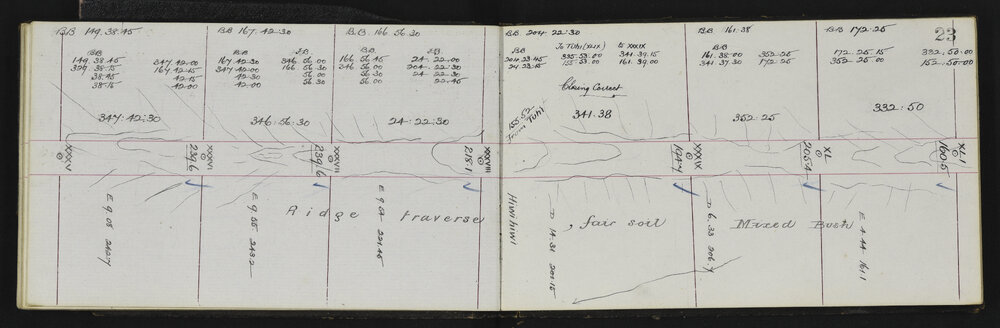 BB 149.38.45
BB 167.42.30
BB 166 56.30
BB 204.22.30
BB 161.38
BB 172.25
23
BB
149.38.45 347.42.00
329.38.15 167.42.15
38.45 42.15
38.15 42.00
BB BB
167.42.30 346 56.00
347.42.00 166 56.30
42.30 56.00
42.00 56.30
BB BB
166 56.45 24.22.00
346 56.00 204.22.30
56.30 24 22.30
56.00 22.45
BB To Tūhi (XLIX) to XXXIX
204.23.45 335.53.00 341.39.15
24.23.15 155.53.00 161.39.00
BB
161.38.00 352.25
341.37.30 172.25
172.25.15 332.50.00
352.25.00 152.50.00
Closing Correct
347.42.30
346.56.30
24.22.30
155.52
From Tuhi
341.38
352.25
332.50
XXXV
239.6 XXXVI
239.6 XXXVII
218.1 XXXVIII
194.7 XXXIX
205.4 XL
160.5 XLI
Ridge traverse
Hiwihiwi
, fair soil
Mixed Bush
E 9.05 242.7
E 9.55 243.2
E 9.54 221.45
D 14.31 201.15
D 6.33 206.7
E 4.44 161.1